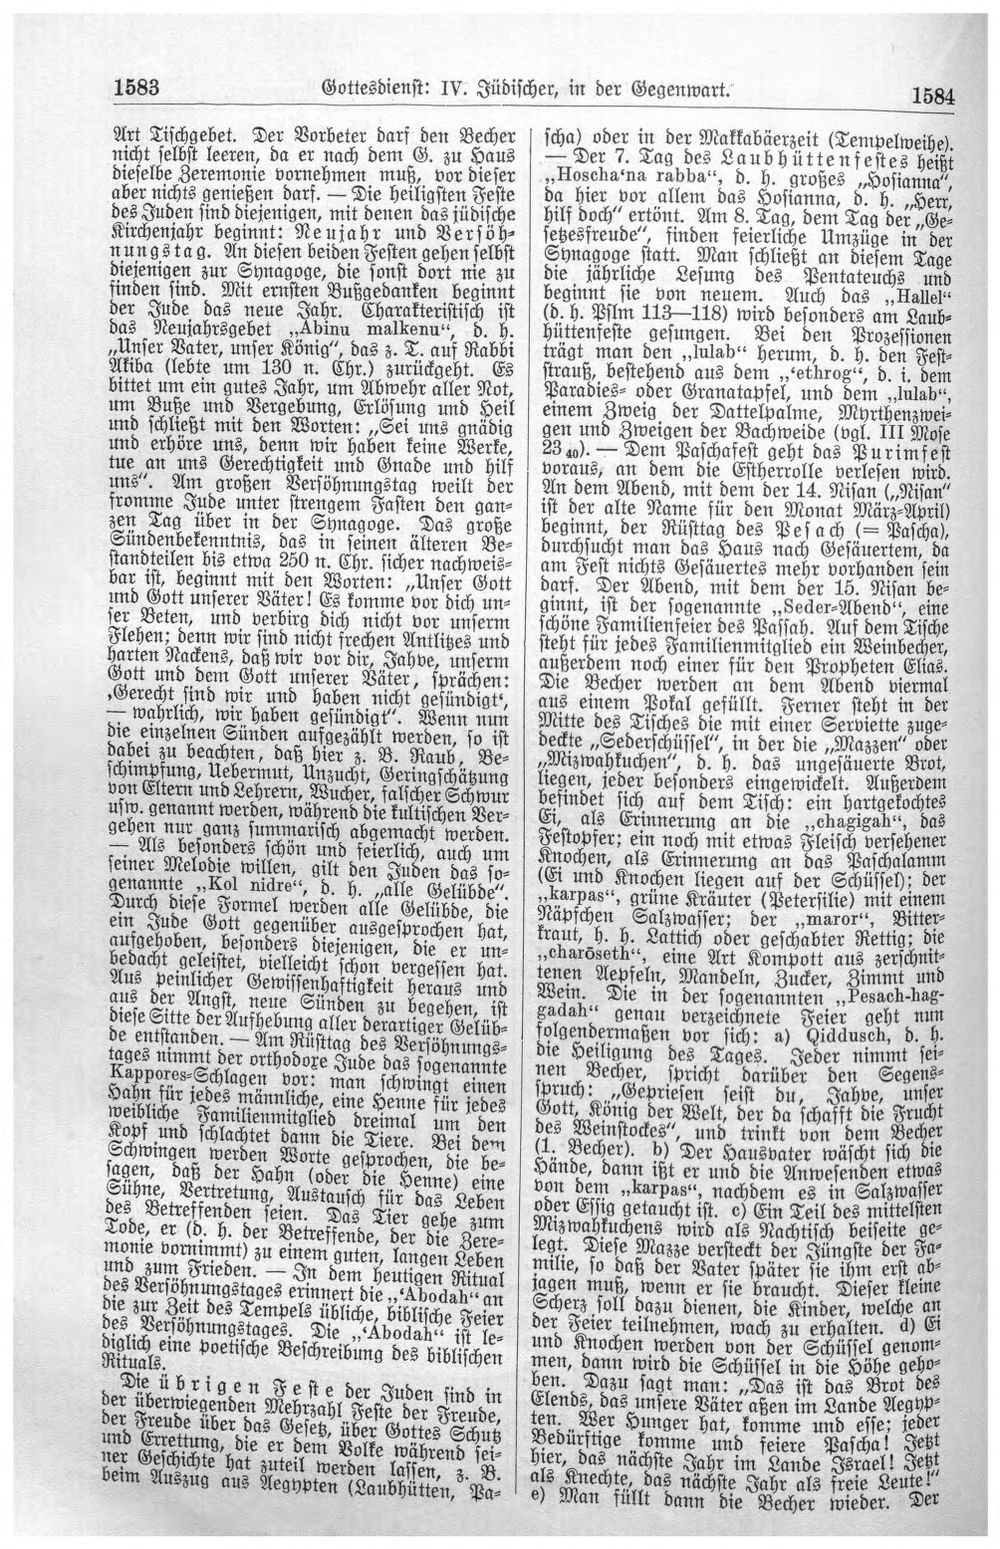 1583 Gottesdienst: IV. Jüdischer, in der Gegenwart. 1584
Art Tischgebet. Der Vorbeter darf den Becher
nicht selbst leeren, da er nach dem G. zu Haus
dieselbe Zeremonie vornehmen muß, vor dieser
aber nichts genießen darf. — Die heiligsten Feste
des Juden sind diejenigen, mit denen das jüdische
Kirchenjahr beginnt: Neujahr und Versöh-
nungstag. An diesen beiden Festen gehen selbst
diejenigen zur Synagoge, die sonst dort nie zu
finden sind. Mit ernsten Bußgedanken beginnt
der Jude das neue Jahr. Charakteristisch ist
das Neujahrsgebet „Abinu malkenu“, d. h.
„Unser Vater, unser König“, das z. T. auf Rabbi
Akiba (lebte um 130 n. Chr.) zurückgeht. Es
bittet um ein gutes Jahr, um Abwehr aller Not,
um Buße und Vergebung, Erlösung und Heil
und schließt mit den Worten: „Sei uns gnädig
und erhöre uns, denn wir haben keine Werke,
tue an uns Gerechtigkeit und Gnade und hilf
uns“. Am großen Versöhnungstag weilt der
fromme Jude unter strengem Fasten den gan-
zen Tag über in der Synagoge. Das große
Sündenbekenntnis, das in seinen älteren Be-
standteilen bis etwa 250 n. Chr. sicher nachweis-
bar ist, beginnt mit den Worten: „Unser Gott
und Gott unserer Väter! Es komme vor dich un-
ser Beten, und verbirg dich nicht vor unserm
Flehen; denn wir sind nicht frechen Antlitzes und
harten Nackens, daß wir vor dir, Jahve, unserm
Gott und dem Gott unserer Väter, sprächen:
‚Gerecht sind wir und haben nicht gesündigt‘,
— wahrlich, wir haben gesündigt“. Wenn nun
die einzelnen Sünden aufgezählt werden, so ist
dabei zu beachten, daß hier z. B. Raub, Be-
schimpfung, Uebermut, Unzucht, Geringschätzung
von Eltern und Lehrern, Wucher, falscher Schwur
usw. genannt werden, während die kultischen Ver-
gehen nur ganz summarisch abgemacht werden.
— Als besonders schön und feierlich, auch um
seiner Melodie willen, gilt den Juden das so-
genannte „Kol nidre“, d. h. „alle Gelübde“.
Durch diese Formel werden alle Gelübde, die
ein Jude Gott gegenüber ausgesprochen hat,
aufgehoben, besonders diejenigen, die er un-
bedacht geleistet, vielleicht schon vergessen hat.
Aus peinlicher Gewissenhaftigkeit heraus und
aus der Angst, neue Sünden zu begehen, ist
diese Sitte der Aufhebung aller derartiger Gelüb-
de entstanden. — Am Rüsttag des Versöhnungs-
tages nimmt der orthodoxe Jude das sogenannte
Kappores-Schlagen vor: man schwingt einen
Hahn für jedes männliche, eine Henne für jedes
weibliche Familienmitglied dreimal um den
Kopf und schlachtet dann die Tiere. Bei dem
Schwingen werden Worte gesprochen, die be-
sagen, daß der Hahn (oder die Henne) eine
Sühne, Vertretung, Austausch für das Leben
des Betreffenden seien. Das Tier gehe zum
Tode, er (d. h. der Betreffende, der die Zere-
monie vornimmt) zu einem guten, langen Leben
und zum Frieden. — In dem heutigen Ritual
des Versöhnungstages erinnert die „‘Abodah“ an
die zur Zeit des Tempels übliche, biblische Feier
des Versöhnungstages. Die „‘Abodah“ ist le-
diglich eine poetische Beschreibung des biblischen
Rituals.
Die übrigen Feste der Juden sind in
der überwiegenden Mehrzahl Feste der Freude,
der Freude über das Gesetz, über Gottes Schutz
und Errettung, die er dem Volke während sei-
ner Geschichte hat zuteil werden lassen, z. B.
beim Auszug aus Aegypten (Laubhütten, Pa-
scha) oder in der Makkabäerzeit (Tempelweihe).
— Der 7. Tag des Laubhüttenfestes heißt
„Hoscha‘na rabba“, d. h. großes „Hosianna“,
da hier vor allem das Hosianna, d. h. „Herr,
hilf doch“ ertönt. Am 8. Tag, dem Tag der „Ge-
setzesfreude“, finden feierliche Umzüge in der
Synagoge statt. Man schließt an diesem Tage
die jährliche Lesung des Pentateuchs und
beginnt sie von neuem. Auch das „Hallel“
(d. h. Pslm 113—118) wird besonders am Laub-
hüttenfeste gesungen. Bei den Prozessionen
trägt man den „lulab“ herum, d. h. den Fest-
strauß, bestehend aus dem „‘ethrog“, d. i. dem
Paradies- oder Granatapfel, und dem „lulab“,
einem Zweig der Dattelpalme, Myrthenzwei-
gen und Zweigen der Bachweide (vgl. III Mose
23 40). — Dem Paschafest geht das Purimfest
voraus, an dem die Estherrolle verlesen wird.
An dem Abend, mit dem der 14. Nisan („Nisan“
ist der alte Name für den Monat März-April)
beginnt, der Rüsttag des Pesach (= Pascha),
durchsucht man das Haus nach Gesäuertem, da
am Fest nichts Gesäuertes mehr vorhanden sein
darf. Der Abend, mit dem der 15. Nisan be-
ginnt, ist der sogenannte „Seder-Abend“, eine
schöne Familienfeier des Passah. Auf dem Tische
steht für jedes Familienmitglied ein Weinbecher,
außerdem noch einer für den Propheten Elias.
Die Becher werden an dem Abend viermal
aus einem Pokal gefüllt. Ferner steht in der
Mitte des Tisches die mit einer Serviette zuge-
deckte „Sederschüssel“, in der die „Mazzen“ oder
„Mizwahkuchen“, d. h. das ungesäuerte Brot,
liegen, jeder besonders eingewickelt. Außerdem
befindet sich auf dem Tisch: ein hartgekochtes
Ei, als Erinnerung an die „chagigah“, das
Festopfer; ein noch mit etwas Fleisch versehener
Knochen, als Erinnerung an das Paschalamm
(Ei und Knochen liegen auf der Schüssel); der
„karpas“, grüne Kräuter (Petersilie) mit einem
Näpfchen Salzwasser; der „maror“, Bitter-
kraut, h. h. Lattich oder geschabter Rettig; die
„charōseth“, eine Art Kompott aus zerschnit-
tenen Aepfeln, Mandeln, Zucker, Zimmt und
Wein. Die in der sogenannten „Pesach-hag-
gadah“ genau verzeichnete Feier geht nun
folgendermaßen vor sich: a) Qiddusch, d. h.
die Heiligung des Tages. Jeder nimmt sei-
nen Becher, spricht darüber den Segens-
spruch: „Gepriesen seist du, Jahve, unser
Gott, König der Welt, der da schafft die Frucht
des Weinstockes“, und trinkt von dem Becher
(1. Becher). b) Der Hausvater wäscht sich die
Hände, dann ißt er und die Anwesenden etwas
von dem „karpas“, nachdem es in Salzwasser
oder Essig getaucht ist. c) Ein Teil des mittelsten
Mizwahkuchens wird als Nachtisch beiseite ge-
legt. Diese Mazze versteckt der Jüngste der Fa-
milie, so daß der Vater später sie ihm erst ab-
jagen muß, wenn er sie braucht. Dieser kleine
Scherz soll dazu dienen, die Kinder, welche an
der Feier teilnehmen, wach zu erhalten. d) Ei
und Knochen werden von der Schüssel genom-
men, dann wird die Schüssel in die Höhe geho-
ben. Dazu sagt man: „Das ist das Brot des
Elends, das unsere Väter aßen im Lande Aegyp-
ten. Wer Hunger hat, komme und esse; jeder
Bedürftige komme und feiere Pascha! Jetzt
hier, das nächste Jahr im Lande Israel! Jetzt
als Knechte, das nächste Jahr als freie Leute!“
e) Man füllt dann die Becher wieder. Der